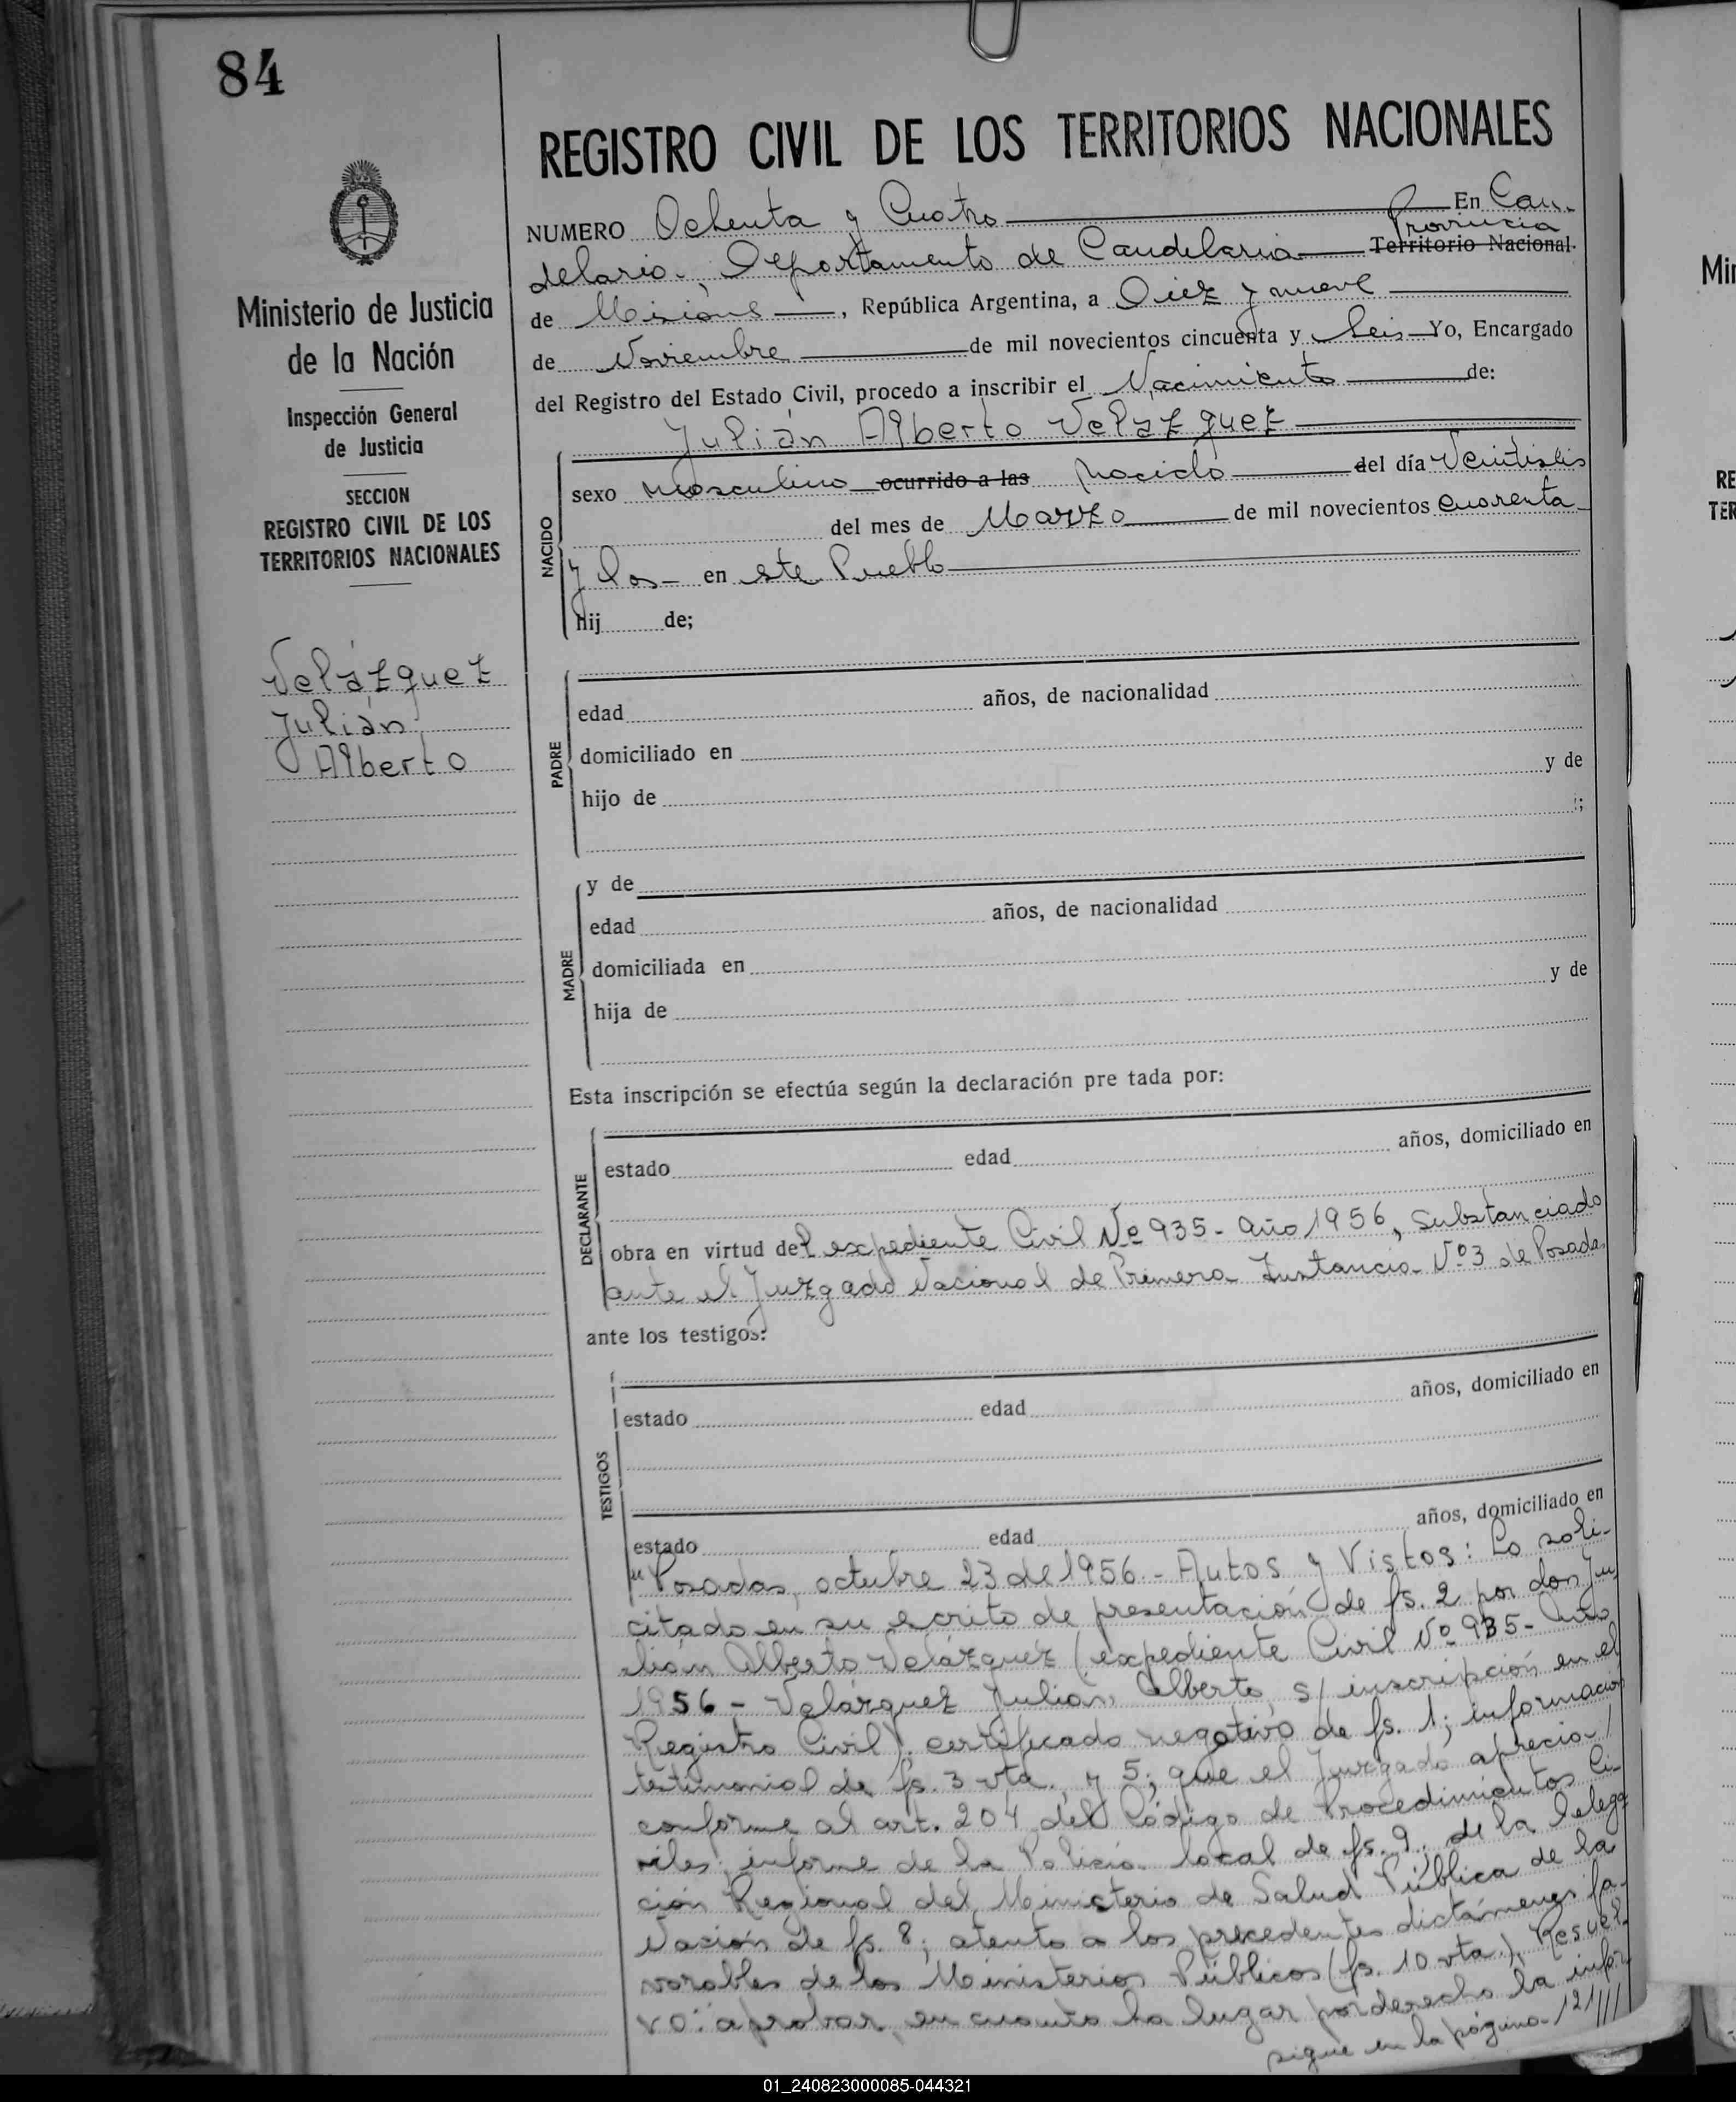 84
REGISTRO CIVIL DE LOS TERRITORIOS NACIONALES
Ministerio de Justicia
de la Nación
Inspección General
de Justicia
SECCION
REGISTRO CIVIL DE LOS
TERRITORIOS NACIONALES
Velázquez
Julián
Alberto
NUMERO Ochenta y Cuatro En Can-
Provincia
delaria, Departamento de Candelaria Territorio Nacional
de Misiones, República Argentina, a Diez y nueve
de Noviembre de mil novecientos cincuenta y Seis Yo, Encargado
del Registro del Estado Civil, procedo a inscribir el Nacimiento de:
Julián Alberto Velázquez
NACIDO
sexo masculino ocurrido a las nacido del día Veintiséis
del mes de Marzo de mil novecientos cuarenta
y dos en este Pueblo
hij de;
PADRE
edad años, de nacionalidad
domiciliado en
hijo de y de
;
MADRE
y de
edad años, de nacionalidad
domiciliada en
hija de y de
Esta inscripción se efectúa según la declaración pre tada por:
DECLARANTE
estado edad años, domiciliado en
obra en virtud del expediente Civil Nº 935- año 1956, Substanciado
ante el Juzgado Nacional de Primera Instancia Nº 3 de Posadas
ante los testigos:
TESTIGOS
estado edad años, domiciliado en
estado edad años, domiciliado en
"Posadas, octubre 23 de 1956.- Autos y Vistos: Lo soli-
citado en su escrito de presentación de fs. 2 por don Ju
lián Alberto Velázquez (expediente Civil Nº 935- año
1956 - Velázquez Julián Alberto s/ inscripción en el
Registro Civil); certificado negativo de fs. 1; información
testimonial de fs. 3 vta. y 5; que el Juzgado aprecia
conforme al art. 204 del Código de Procedimientos Ci-
viles; informe de la Policía local de fs. 9. de la Delega
ción Regional del Ministerio de Salud Pública de la
Nación de fs. 8; atento a los precedentes dictámenes fa-
vorables de los Ministerios Públicos (fs. 10 vta.), Resuel-
vo: aprobar, en cuanto ha lugar por derecho la infor
sigue en la página 121///
01_240823000085-044321